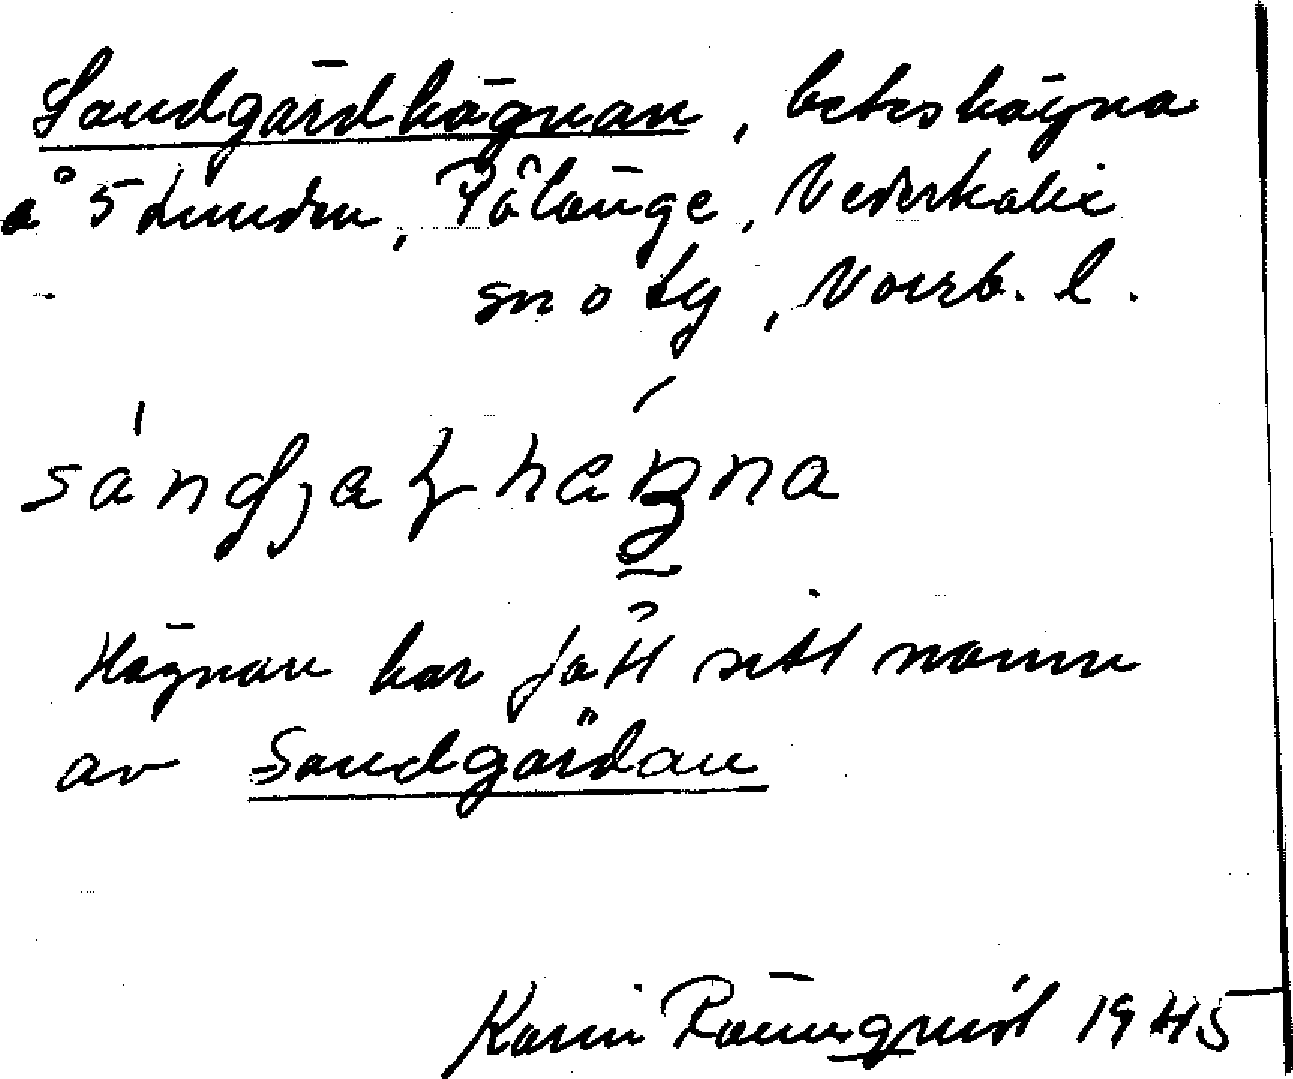 Sandgärdhägnan, beteshägna
å 5 Lunden, Pålänge, Nederkalix
sn o tg, Norrb. l.
Hägnan har fått sitt namn
av Sandgärdan
Karin Rönnqvist 1945